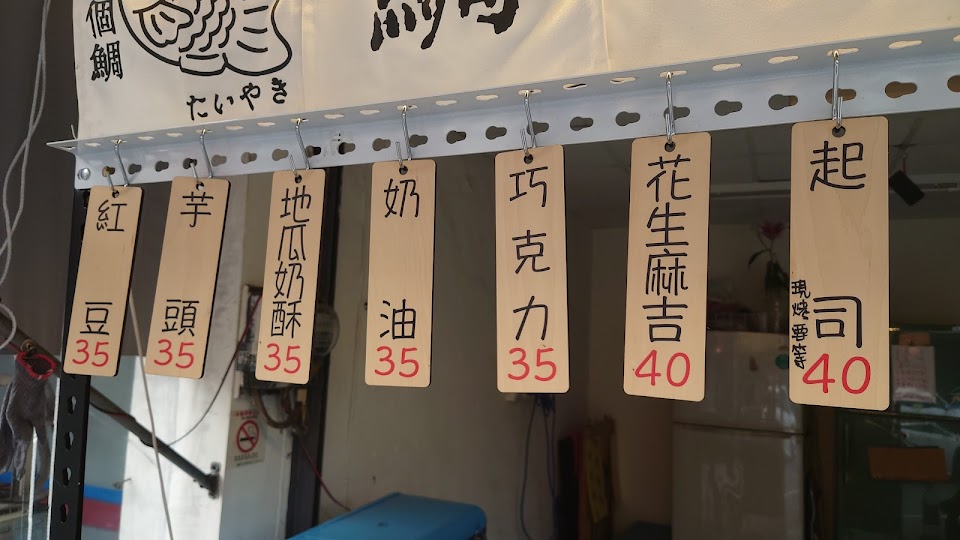 個鯛
鯛
たいやき
紅豆
35
芋頭
35
地瓜奶酥
35
奶油
35
巧克力
35
花生麻吉
40
起司
現燒要等
40